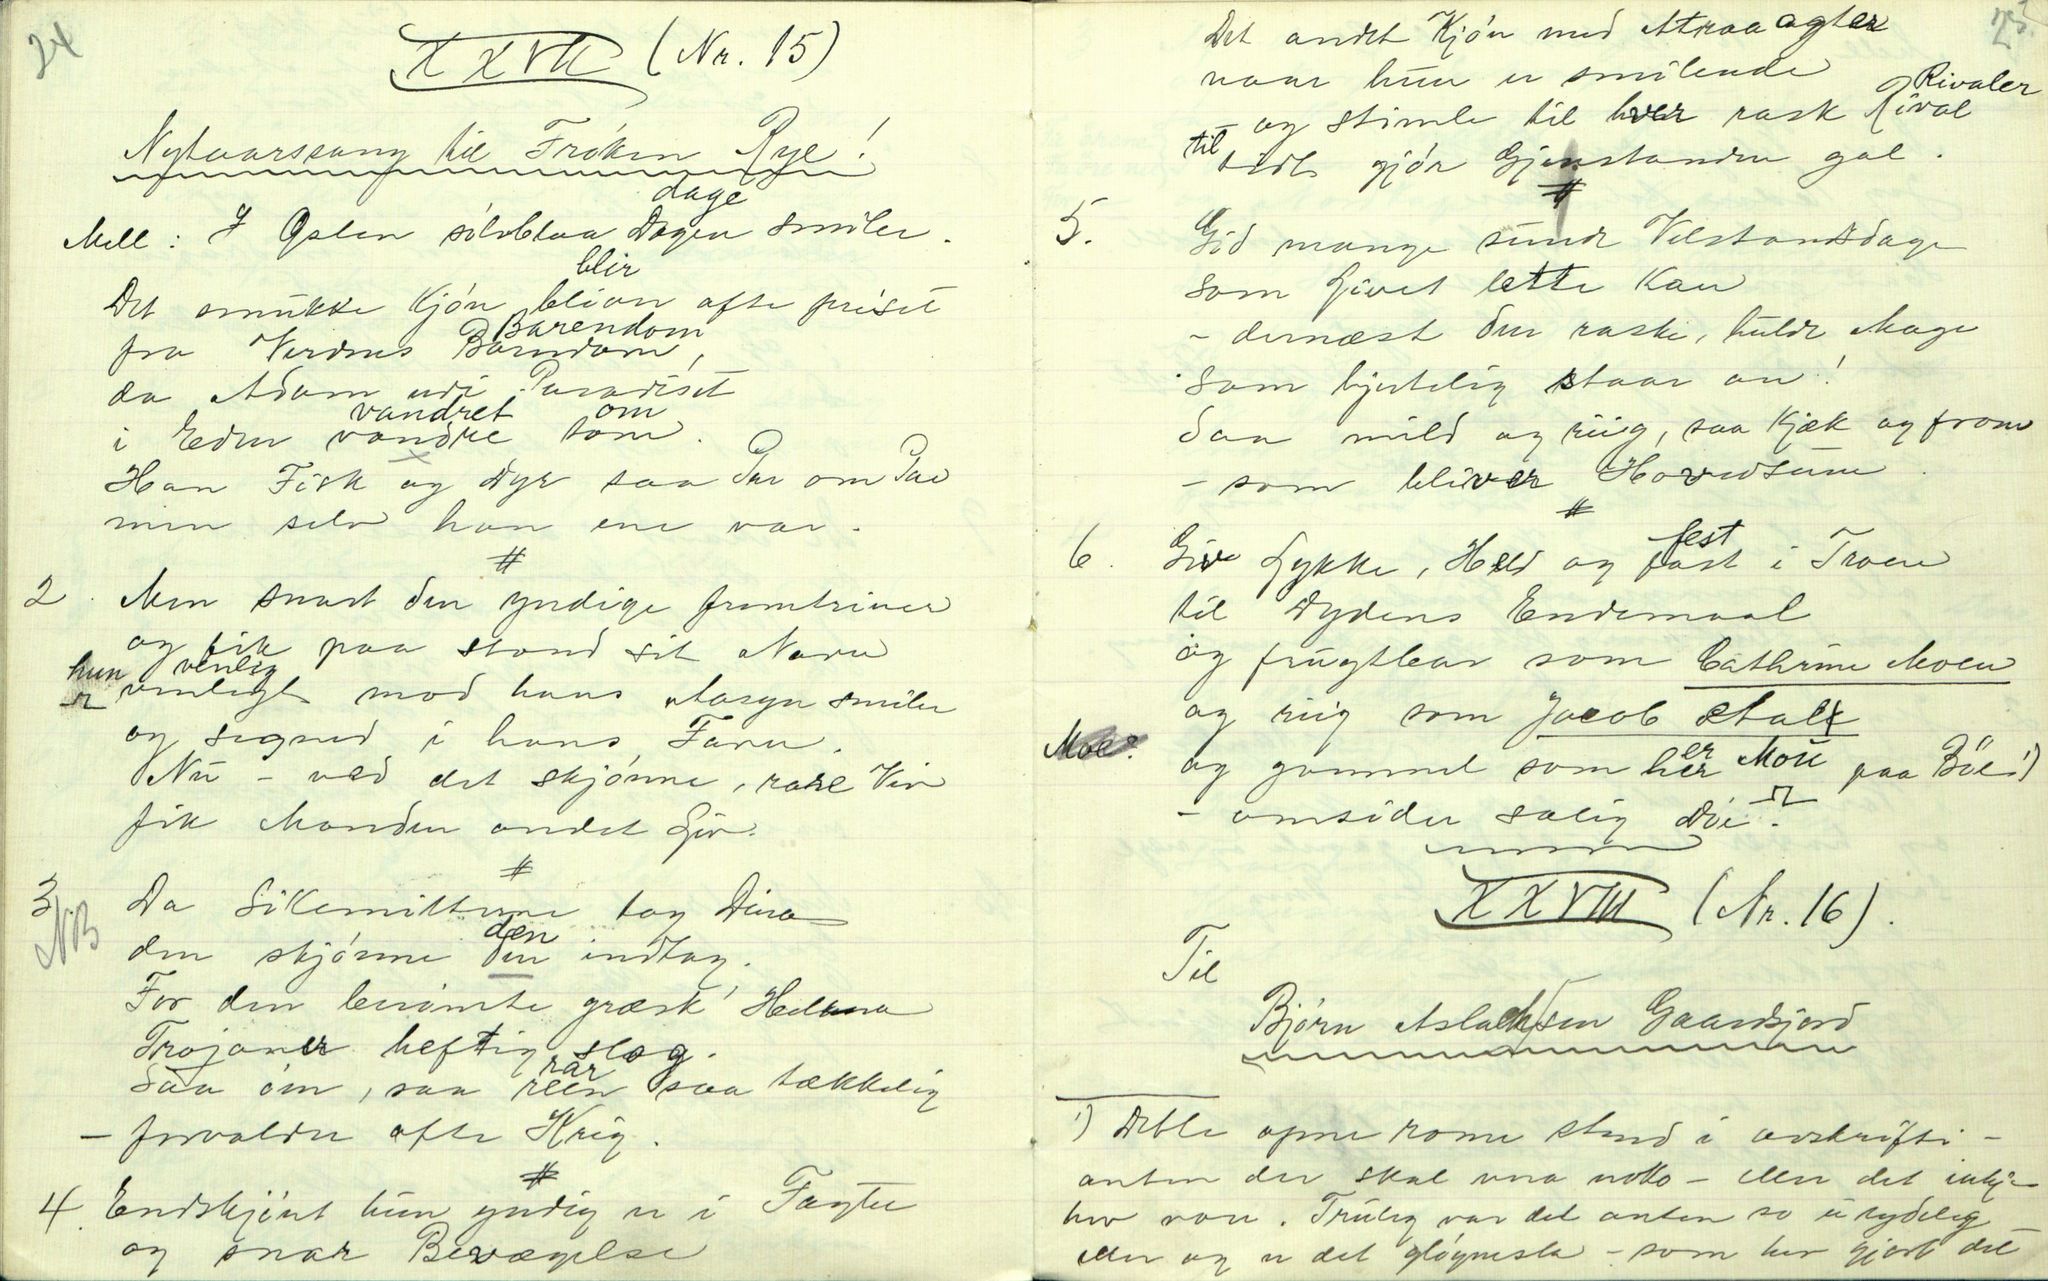 24
XXVII (Nr. 15)
Nytaarssang til Frøken Rye!
dage
Mell: I Østen sølvblaa Dagen smiler.
blir
Det smukke Kjøn bliver ofte priset
Barendom
fra Verdens Barndom,
da Adam udi Paradiset
vandret om
i Eden vandre som.
Han Fisk og Dyr saa Par om Par
men selv han ene var.
#
2. Men snart den yndige fremtriner
og fik paa stand sit Navn
hun venlig
venligt mod hans Aasyn smiler
og segned i hans Favn.
Nu - ved det skjønne, rare Viv
fik Manden andet Liv.
#
3. Da Sikemitterne tog Dina
NB
den
den skjønne den indtog.
For den berømte græsk' Helena
Trojaner heftig slog.
rar
Saa øm, saa reen saa tækkelig
- forvolder ofte Krig.
#
4. Endskjønt hun yndig er i Fagter
og snar Bevægelse
25
Det andet Kjøn med Atraa agter
naar hun er smilende
Rivaler
- og stimle til hver rask Rival
til
tidt gjør Gjenstanden gal.
#
5. Gid mange sunde Velstandsdage
som Livet lette kan
- dernæst den raske, hulde Mage
som hjertelig staar an!
Saa mild og riig, saa kjæk og from
- som bliver Hovedsum.
#
fest
6. Giv Lykke, Held og fast i Troen
til Dydens Endemaal
og frugtbar som Cathrine Moen
og riig som Jacob Stall
Moe? er
og gammel som her Moe paa Bøe 1)
- omsider salig Døe.
XXVIII (Nr. 16).
Til
Bjørn Aslachsen Gaardsjord
1) Dette opne rome stend i avskrifti -
anten der skal vera noko - eller det inkje
hev vori. Truleg var det anten so utydeleg
eller og er det gløymsla - som hev gjort det